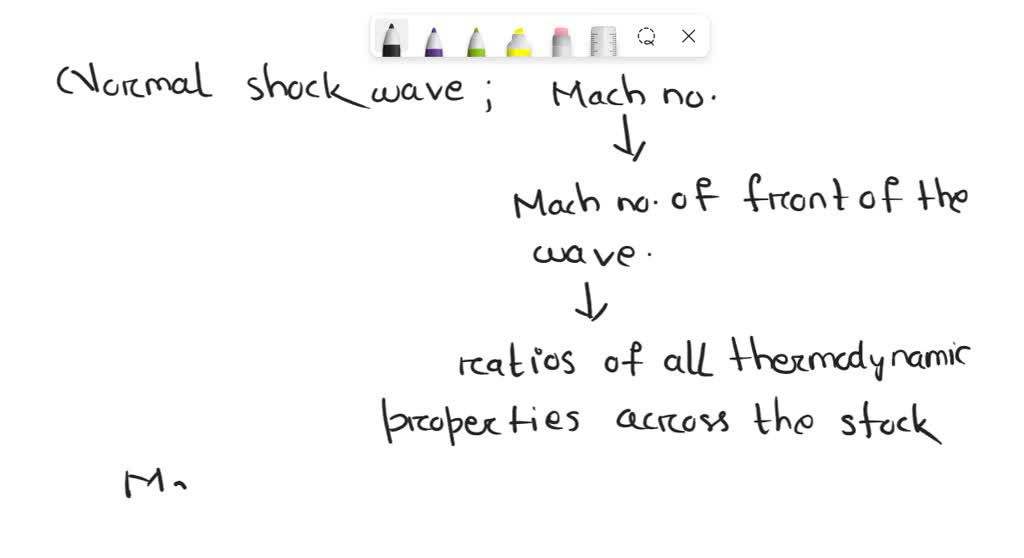 Normal shock wave; Mach no.
↓
Mach no. of front of the
wave.
↓
ratios of all thermodynamic
properties across the stock
M